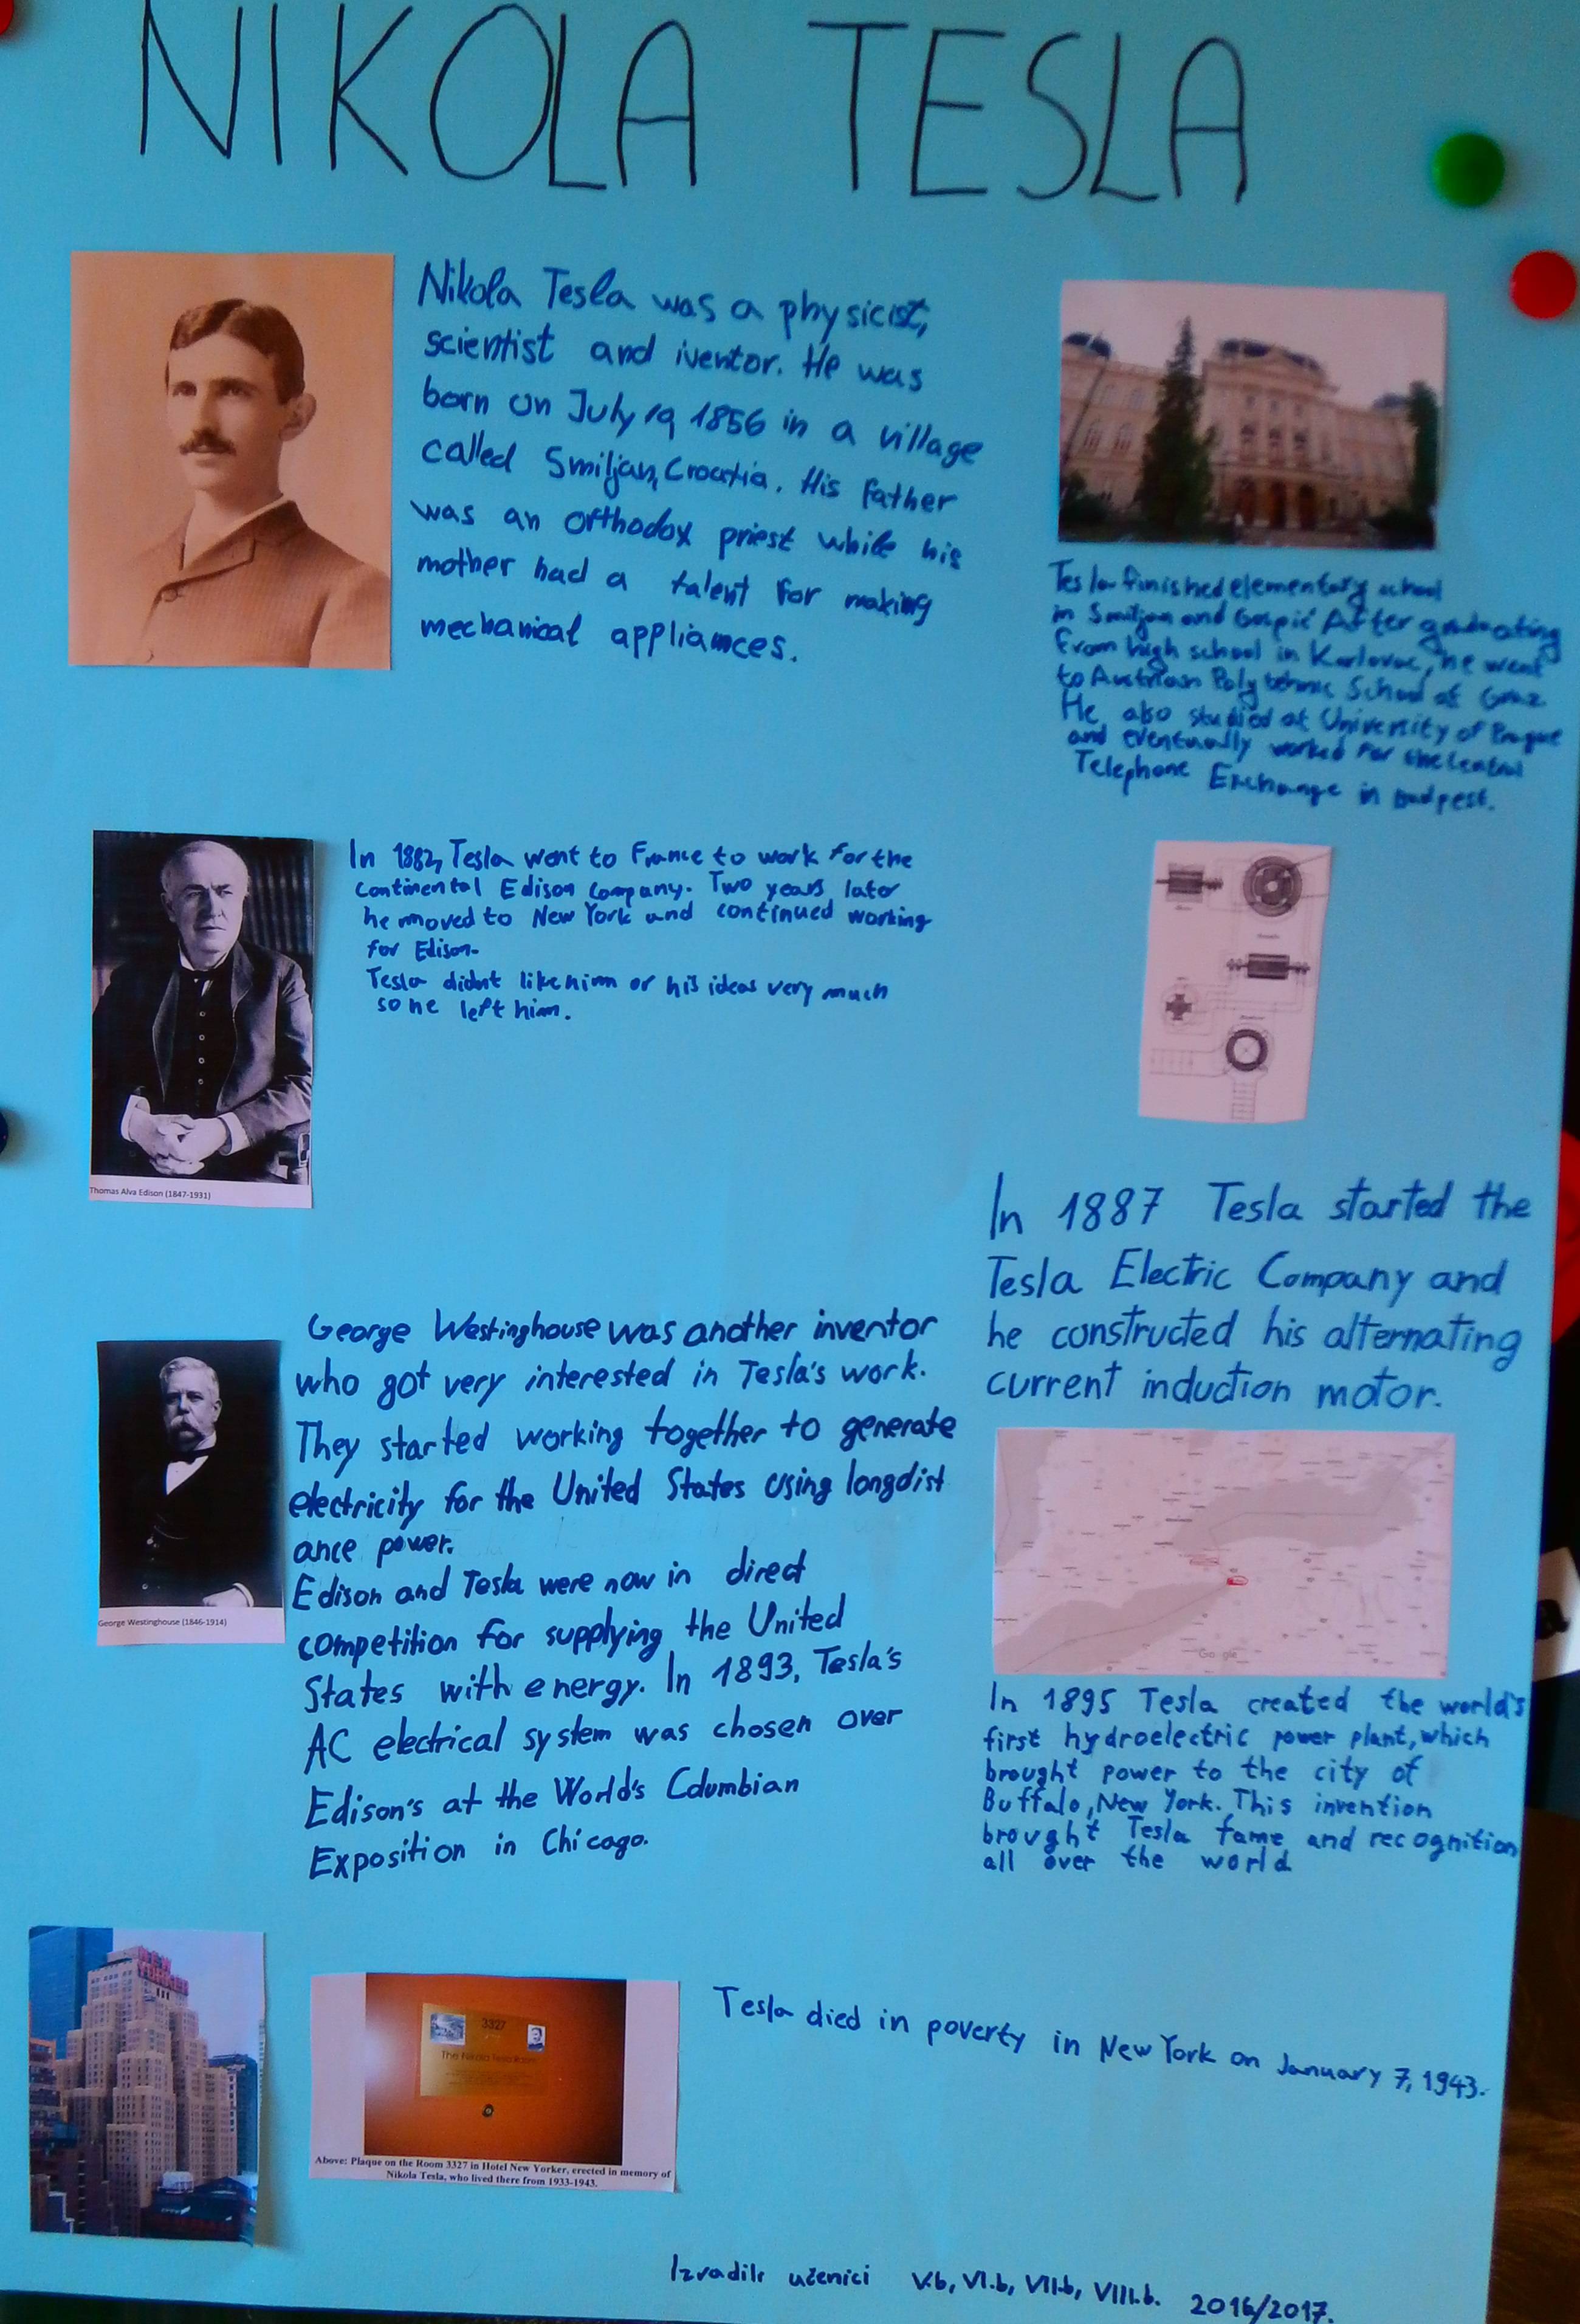 NIKOLA TESLA
Nikola Tesla was a physicist,
scientist and iventor. He was
born on July 1856 in a village
called Smiljan, Croatia. His father
was an orthodox priest while his
mother had a talent for making
mechanical appliances.
Tesla finished elementary school
in Smiljan and Gospić After graduating
from high school in Karlovac, he went
to Austrian School at Graz
He also studied at University of Prague
and eventually worked for the Central
Telephone Exchange in
In 1882, Tesla went to France to work for the
Continental Edison Company. Two years later
he moved to New York and continued working
for Edison.
Tesla didnt like him or his ideas very much
so he left him.
Thomas Alva Edison (1847-1931)
In 1887 Tesla started the
Tesla Electric Company and
he constructed his alternating
current induction motor.
George Westinghouse was another inventor
who got very interested in Tesla's work.
They started working together to generate
electricity for the United States using longdist
ance power.
Edison and Tesla were now in direct
competition for supplying the United
States with energy. In 1893, Tesla's
AC electrical system was chosen over
Edison's at the World's Columbian
Exposition in Chicago.
George Westinghouse (1846-1914)
Google
In 1895 Tesla created the world's
first hydroelectric power plant, which
brought power to the city of
Buffalo, New York. This invention
brought Tesla fame and recognition
all over the world
NEW
YORKER
3327
The Nikola Tesla Room
Above: Plaque on the Room 3327 in Hotel New Yorker, erected in memory of
Nikola Tesla, who lived there from 1933-1943.
Tesla died in poverty in New York on January 7, 1943.
Izradili učenici V.b, VI.b, VII.b, VIII.b. 2016/2017.